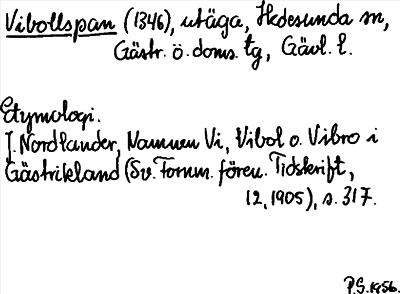 Vibollspan (1346), utäga, Hedesunda sn,
Gästr. ö. doms. tg, Gävl. l.
Etymologi.
J. Nordlander, Namnen Vi, Vibol o. Vibro i
Gästrikland (Sv. Fornm. fören. Tidskrift,
12, 1905), s. 317.
P.S. 1956.